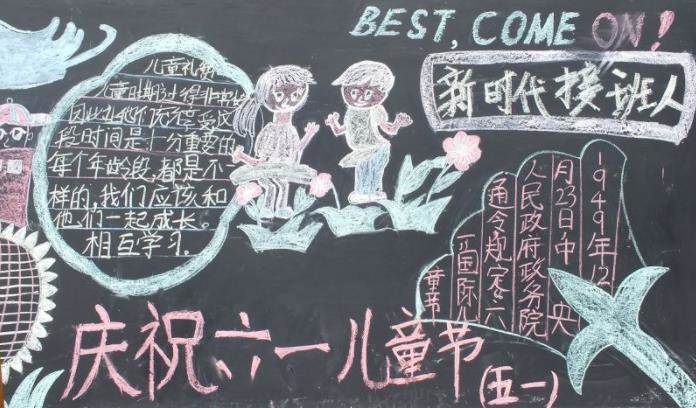 BEST, COME ON!
新时代接班人
儿童礼
儿童时期过得非常快
因此
段时间是十分重要的
每个年龄段,都是不
样的,我们应该和
他们一起成长。
相互学习。
1949年12
月23日中央
人民政府政务院
通令规定六
国际儿
童节
庆祝六一儿童节
(五一)